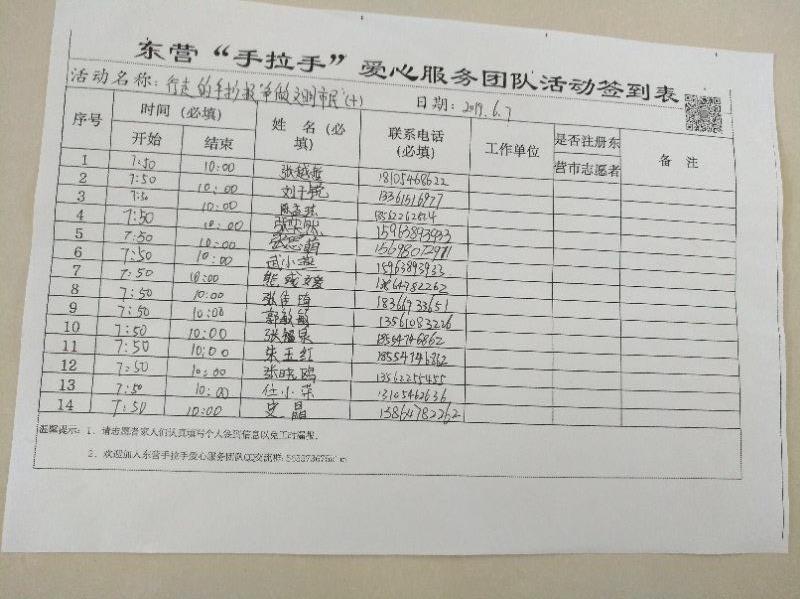 东营“手拉手”爱心服务团队活动签到表
活动名称：行走的手抄报“争做文明市民”（十） 日期：2019.6.7
序号 时间（必填） 姓名（必填） 联系电话（必填） 工作单位 是否注册东营市志愿者 备注
开始 结束
1 7:50 10:00 张越 18105468622
2 7:50 10:00 刘子毓 13361516977
3 7:50 10:00 陈孟
4 7:50 10:00 15963893933
5 7:50 10:00 15698072971
6 7:50 10:00 武小燕 15963893933
7 7:50 10:00 熊 13864782262
8 7:50 10:00 张佳琦 18366933651
9 7:50 10:00 郭敏敏 13561083226
10 7:50 10:00 张韫泉 18554746862
11 7:50 10:00 朱玉红 18554746862
12 7:50 10:00 张晓鸥 13562255455
13 7:50 10:00 任小荣 13105462636
14 7:50 10:00 史晶 13864782262
温馨提示：1、请志愿者家人们认真填写个人签到信息以免工时漏报。
2、欢迎加入东营手拉手爱心服务团队QQ交流群：